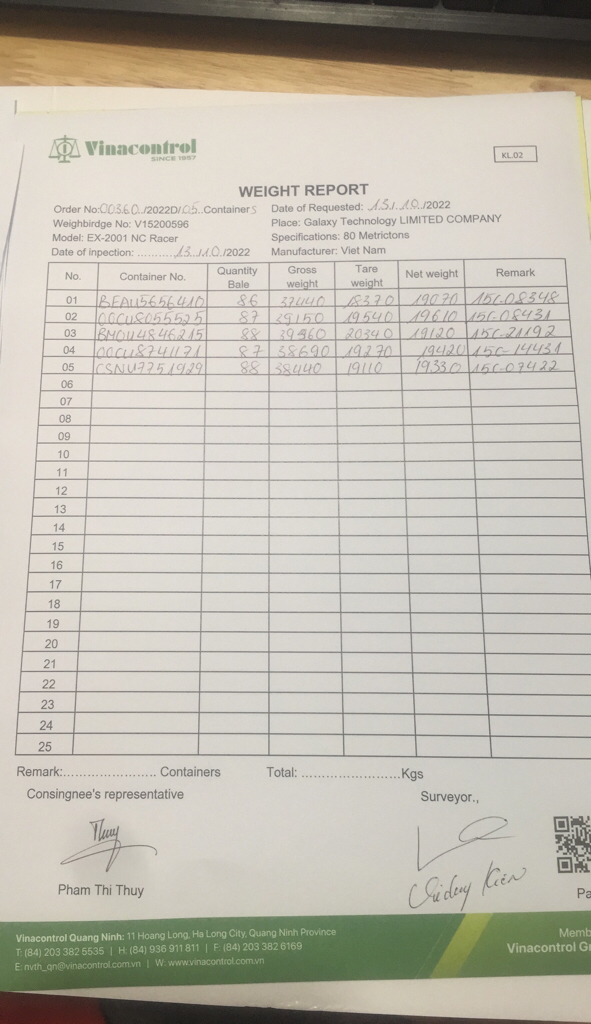 Vinacontrol
SINCE 1957
KL.02
WEIGHT REPORT
Order No:00360./2022D/05..Containers Date of Requested: .13/.10../2022
Weighbirdge No: V15200596 Place: Galaxy Technology LIMITED COMPANY
Model: EX-2001 NC Racer Specifications: 80 Metrictons
Date of inpection: ...........13./10./2022 Manufacturer: Viet Nam
No. Container No. Quantity Bale Gross weight Tare weight Net weight Remark
01 BEAU5656410 86 37440 18370 19070 15C-08348
02 OOCU8055525 87 39150 19540 19610 15C-08431
03 BMOU4846215 88 39460 20340 19120 15C-21192
04 OOCU8741171 87 38690 19270 19420 15C-14431
05 CSNU7751929 88 38440 19110 19330 15C-07422
06
07
08
09
10
11
12
13
14
15
16
17
18
19
20
21
22
23
24
25
Remark:....................... Containers Total: ........................Kgs
Consingnee's representative Surveyor.,
Thuy
Pham Thi Thuy
Pa
Vinacontrol Quang Ninh: 11 Hoang Long, Ha Long City, Quang Ninh Province
T: (84) 203 382 5535 | H: (84) 936 911 811 | F: (84) 203 382 6169
E: nvth_qn@vinacontrol.com.vn | W: www.vinacontrol.com.vn
Memb
Vinacontrol Gr